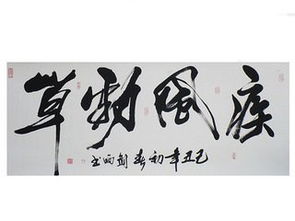 疾風勁草
己丑年初春